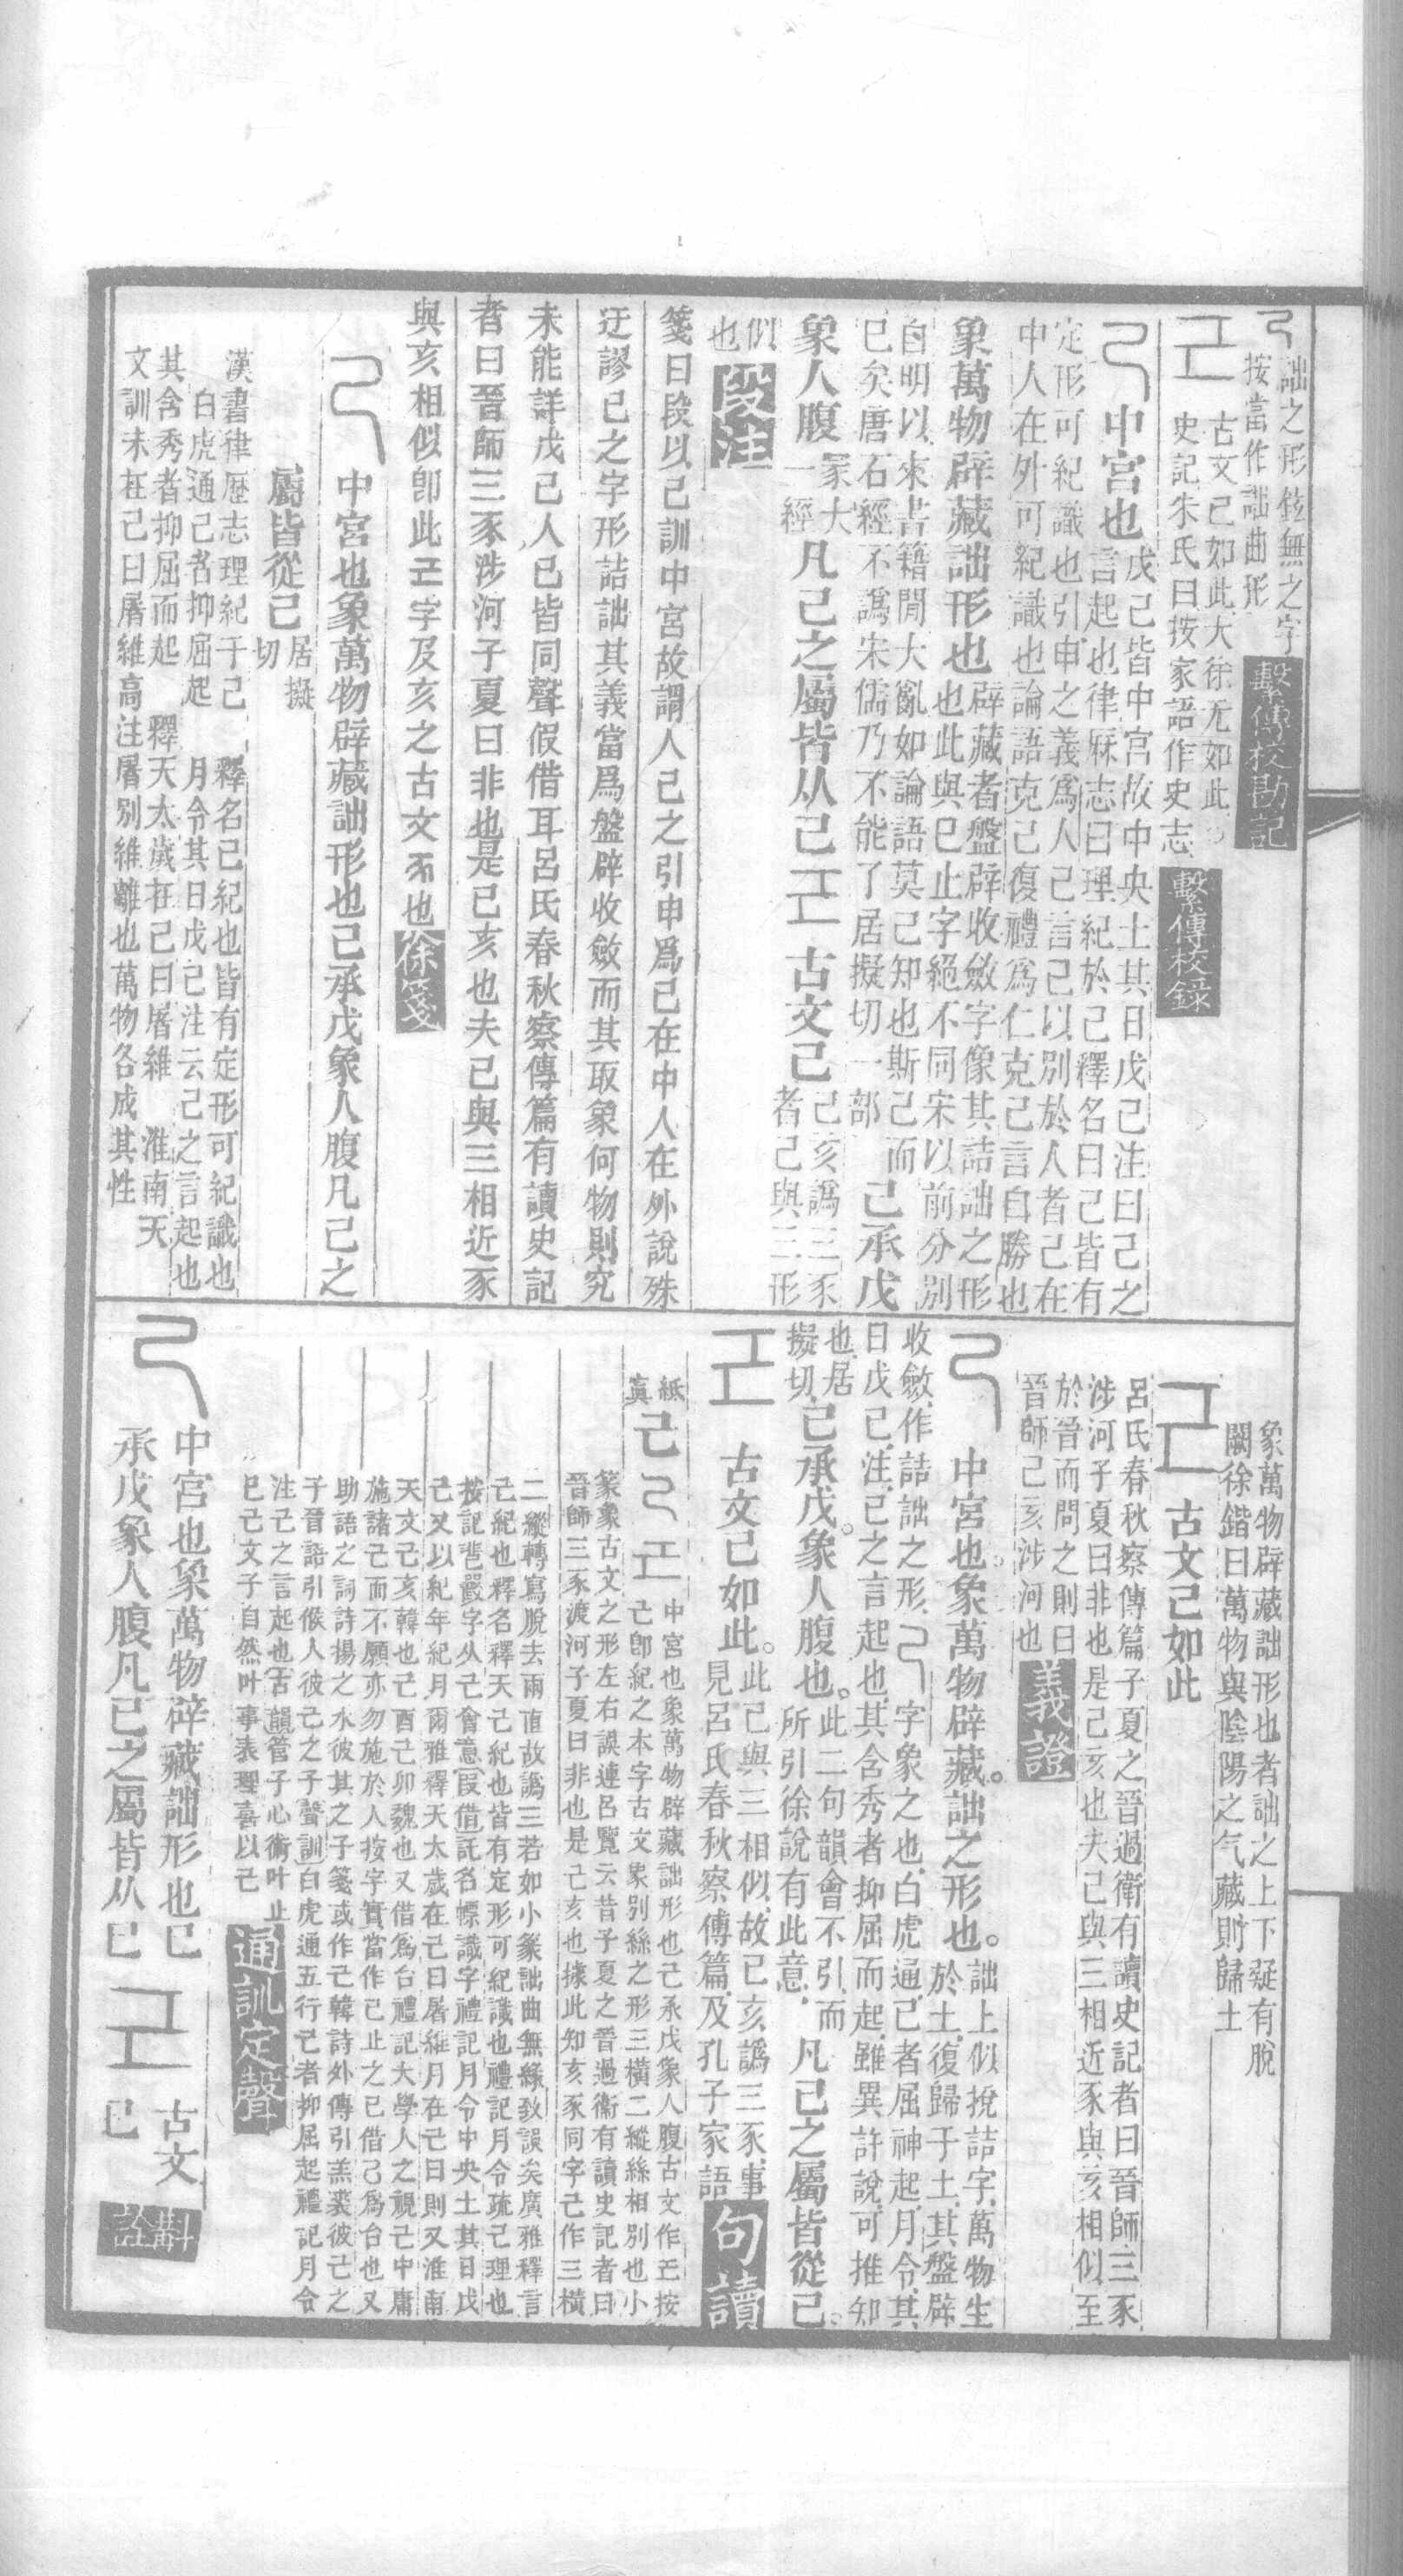 詘之形鉉無之字
按當作詘曲形
繫傳校勘記
古文己如此大徐无如此
史記朱氏曰按家語作史志
繫傳校錄
中宮也
戊己皆中宮故中央土其日戊己注曰己之
言起也律厤志曰理紀於己釋名曰己皆有
定形可紀識也引申之義爲人己言己以別於人者己在
中人在外可紀識也論語克己復禮爲仁克己言自勝也
象萬物辟藏詘形也
辟藏者盤辟收斂字像其詰詘之形
也此與巳止字絕不同宋以前分別
自明以來書籍閒大亂如論語莫己知也斯己而
已矣唐石經不譌宋儒乃不能了居擬切一部
己承戊
象人腹
冡大
一經
凡己之屬皆从己
古文己
己亥譌三豕
者己與三形
似
也
段注
箋曰段以己訓中宮故謂人己之引申爲己在中人在外說殊
迂謬己之字形詰詘其義當爲盤辟收斂而其取象何物則究
未能詳戊己人己皆同聲假借耳呂氏春秋察傳篇有讀史記
者曰晉師三豕涉河子夏曰非也是己亥也夫己與三相近豕
與亥相似卽此字及亥之古文也
徐箋
中宮也象萬物辟藏詘形也己承戊象人腹凡己之
屬皆從己
居擬
切
漢書律厯志理紀于己　釋名己紀也皆有定形可紀識也
白虎通己者抑屈起　月令其日戊己注云己之言起也
其含秀者抑屈而起　釋天太歲在己曰屠維　淮南天
文訓未在己曰屠維高注屠別維離也萬物各成其性
象萬物辟藏詘形也者詘之上下疑有脫
闕徐鍇曰萬物與陰陽之气藏則歸土
古文己如此
呂氏春秋察傳篇子夏之晉過衞有讀史記者曰晉師三豕
涉河子夏曰非也是己亥也夫己與三相近豕與亥相似至
於晉而問之則曰
晉師己亥涉河也
義證
中宮也。象萬物辟藏。詘之形也。
詘上似挩詰字萬物生
於土復歸于土其盤辟
收斂作詰詘之形字象之也白虎通己者屈神起月令其
日戊己注己之言起也其含秀者抑屈而起雖異許說可推知
也居
擬切
己承戊。象人腹也。
此二句韻會不引而
所引徐說有此意
凡己之屬皆從己。
古文己如此。
此己與三相似故己亥譌三豕事
見呂氏春秋察傳篇及孔子家語
句讀
紙
寘
己
中宮也象萬物辟藏詘形也己承戊象人腹古文作按
己卽紀之本字古文象別絲之形三橫二縱絲相別也小
篆象古文之形左右誤連呂覽云昔子夏之晉過衞有讀史記者曰
晉師三豕渡河子夏曰非也是己亥也據此知亥豕同字己作三橫
二縱轉寫脫去兩直故譌三若如小篆詘曲無緣致誤矣廣雅釋言
己紀也釋名釋天己紀也皆有定形可紀識也禮記月令疏己理也
按記誋諅字从己會意叚借託名幖識字禮記月令中央土其日戊
己又以紀年紀月爾雅釋天太歲在己曰屠維月在己曰則又淮南
天文己亥韓也己酉己卯魏也又借爲台禮記大學人之視己中庸
施諸己而不願亦勿施於人按字實當作己止之己借己爲台也又
助語之詞詩揚之水彼其之子箋或作己韓詩外傳引羔裘彼己之
子晉語引候人彼己之子聲訓白虎通五行己者抑屈起禮記月令
注己之言起也古韻管子心術叶止
巳己文子自然叶事表理喜以己
通訓定聲
中宮也象萬物辟藏詘形也己
承戊象人腹凡己之屬皆从己
古文
己
斠詮